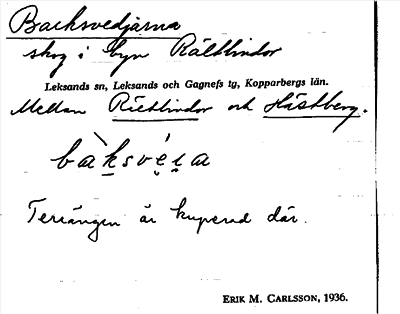 Backsvedjärna
skog i byn Rältlindor
Leksands sn, Leksands och Gagnefs tg, Kopparbergs län.
Mellan Rältlindor och Hästberg.
bàksvéṛa
Terrängen är kuperad där.
ERIK M. CARLSSON, 1936.